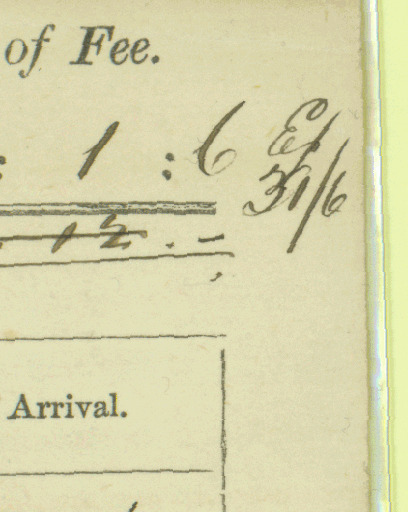 of Fee.
: 1 : 6
31/6
12 . –
Arrival.